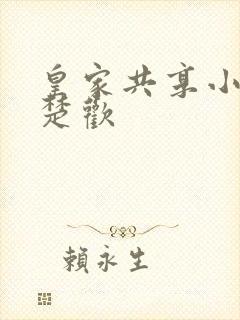 皇家共享小
楚歡
賴永生